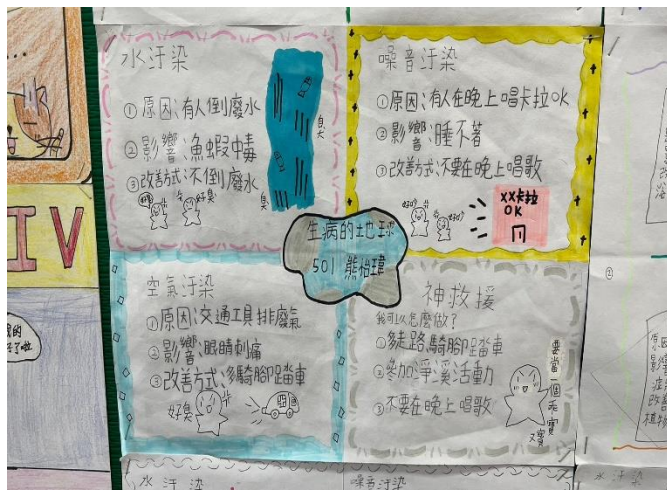 水汙染
①原因:有人倒廢水
②影響:漁蝦中毒
③改善方式:不倒廢水
臭
臭
好臭
噪音汙染
①原因:有人在晚上唱卡拉OK
②影響:睡不著
③改善方式:不要在晚上唱歌
XX卡拉
OK
生病的地球
501 熊怡瑋
空氣汙染
①原因:交通工具排廢氣
②影響:眼睛刺痛
③改善方式:多騎腳踏車
好臭
神救援
我可以怎麼做?
①多走路、騎腳踏車
②參加淨溪活動
③不要在晚上唱歌
要當一個乖寶
寶
IV
水汙染
噪音汙染
水汙染